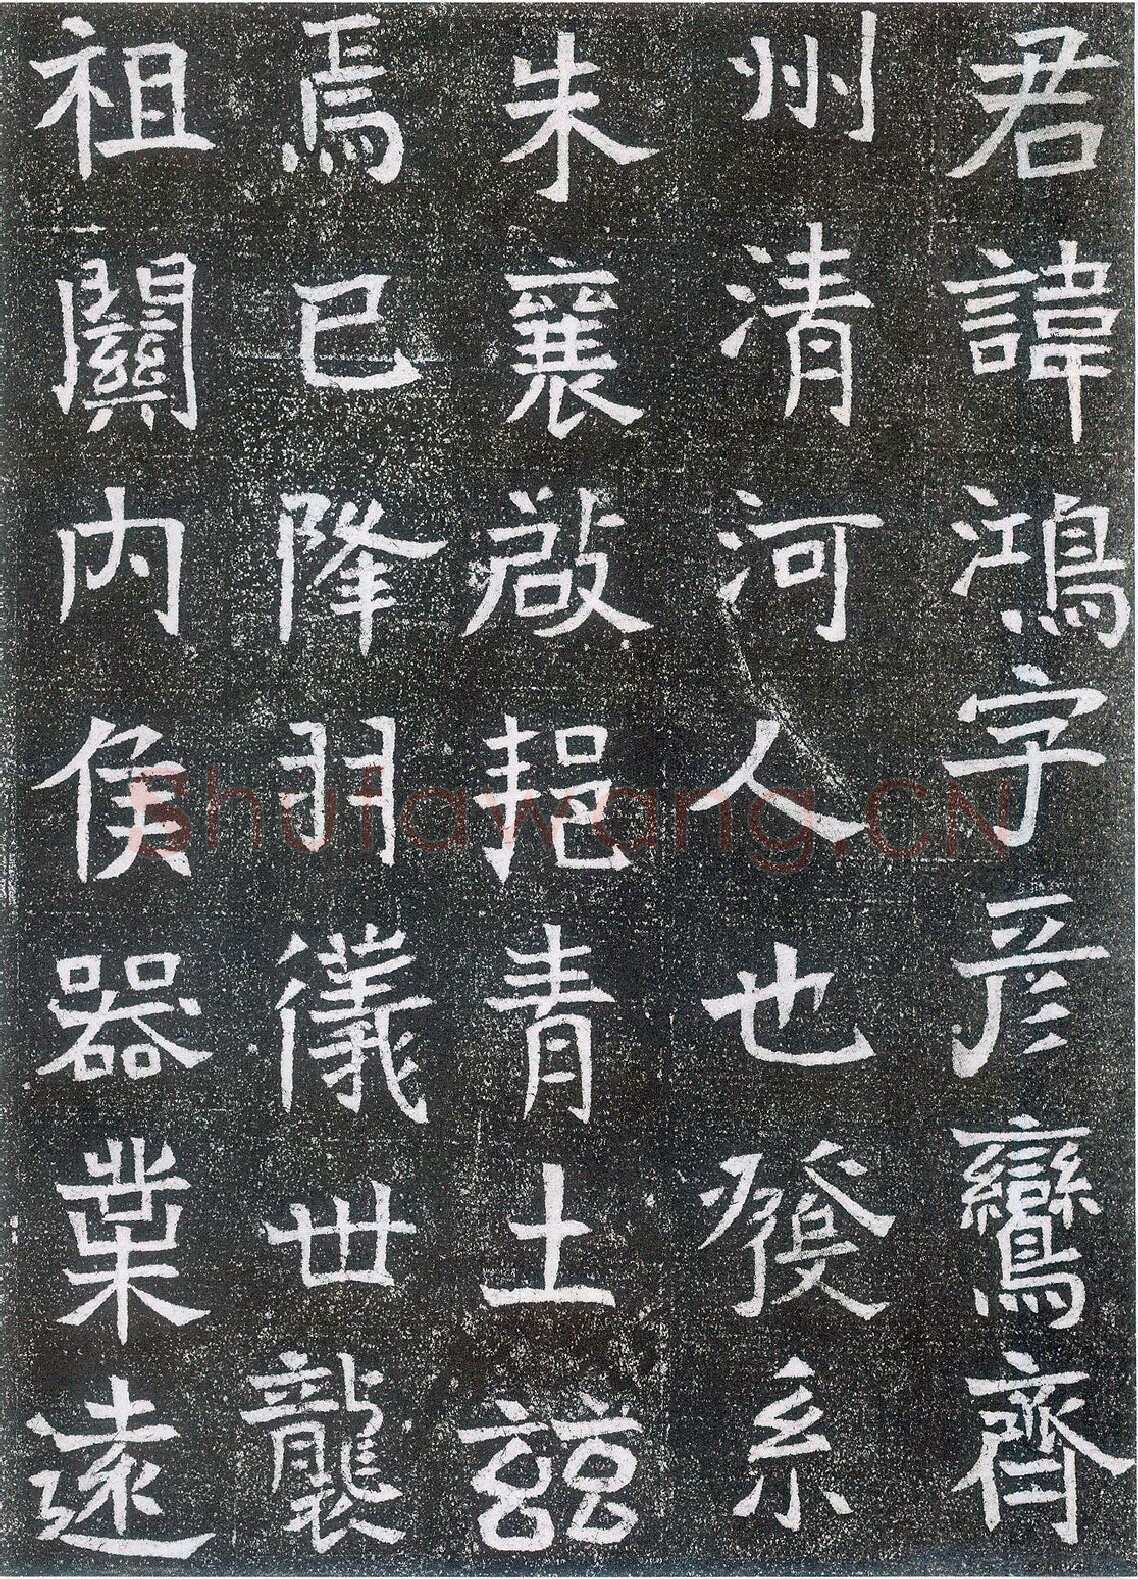 君諱鴻字彥鸞齊
州清河人也發系
朱襄啟挹青土兹
焉已降羽儀世襲
祖關内侯器業遠
Shufawang.CN